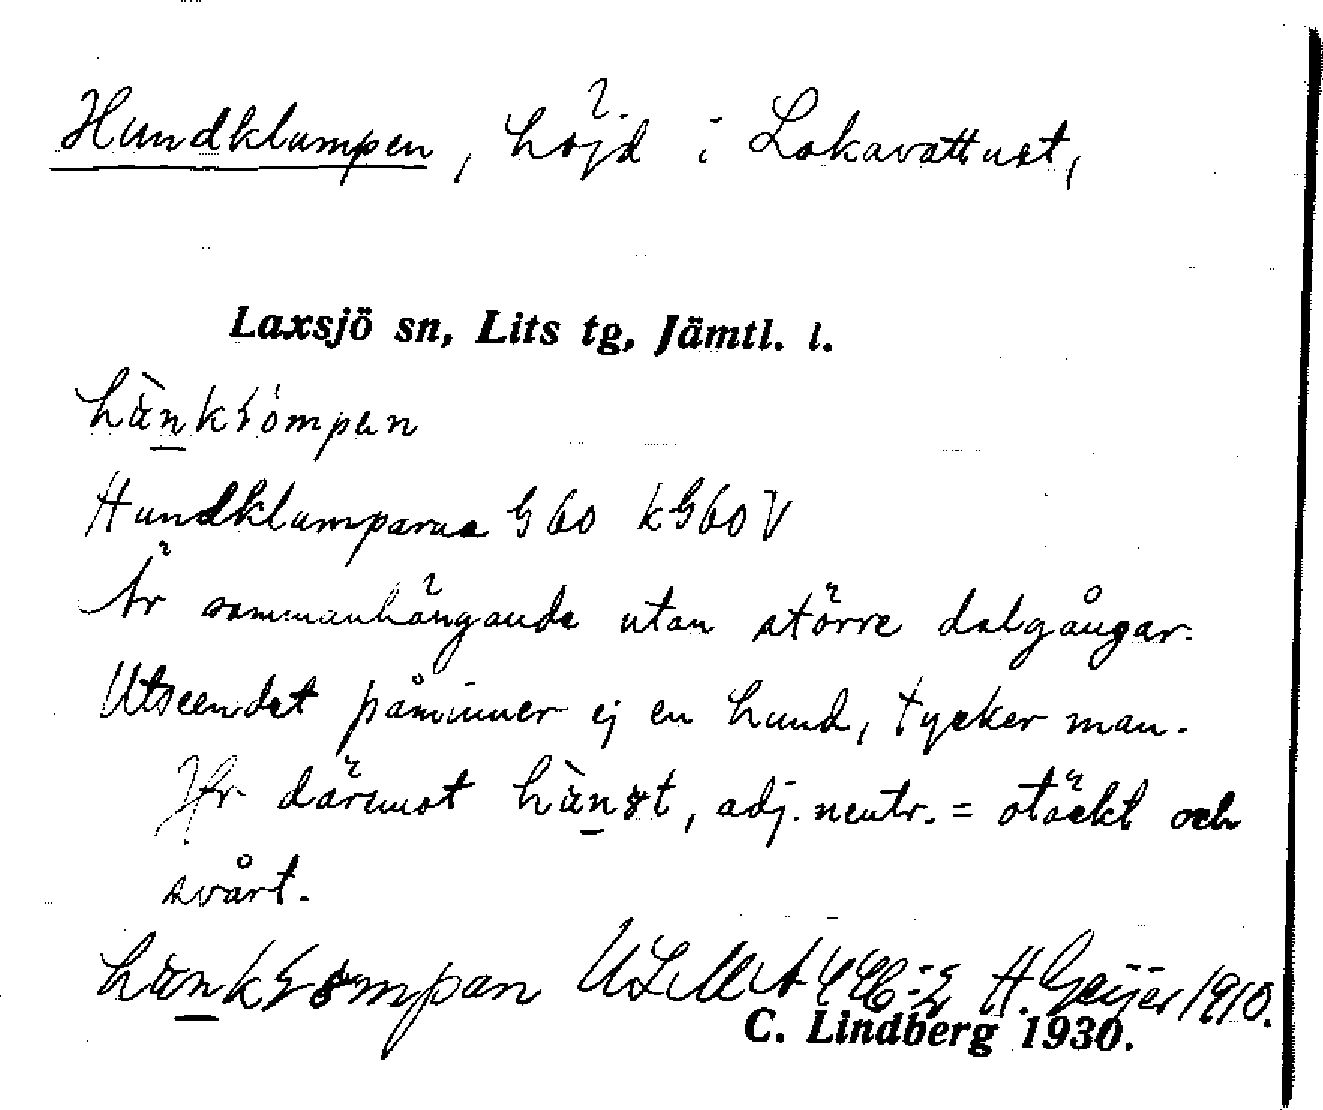 Hundklumpen, höjd i Lakavattnet,
Laxsjö sn, Lits tg, Jämtl. l.
Hundklumparna G 60 kG60V
Är sammanhängande utan större dalgångar.
Utseendet påminner ej en hund, tycker man.
Jfr däremot hànst, adj. neutr. = otäckt och
svårt.
ULMA 446:2 H. Geijer 1910.
C. Lindberg 1930.